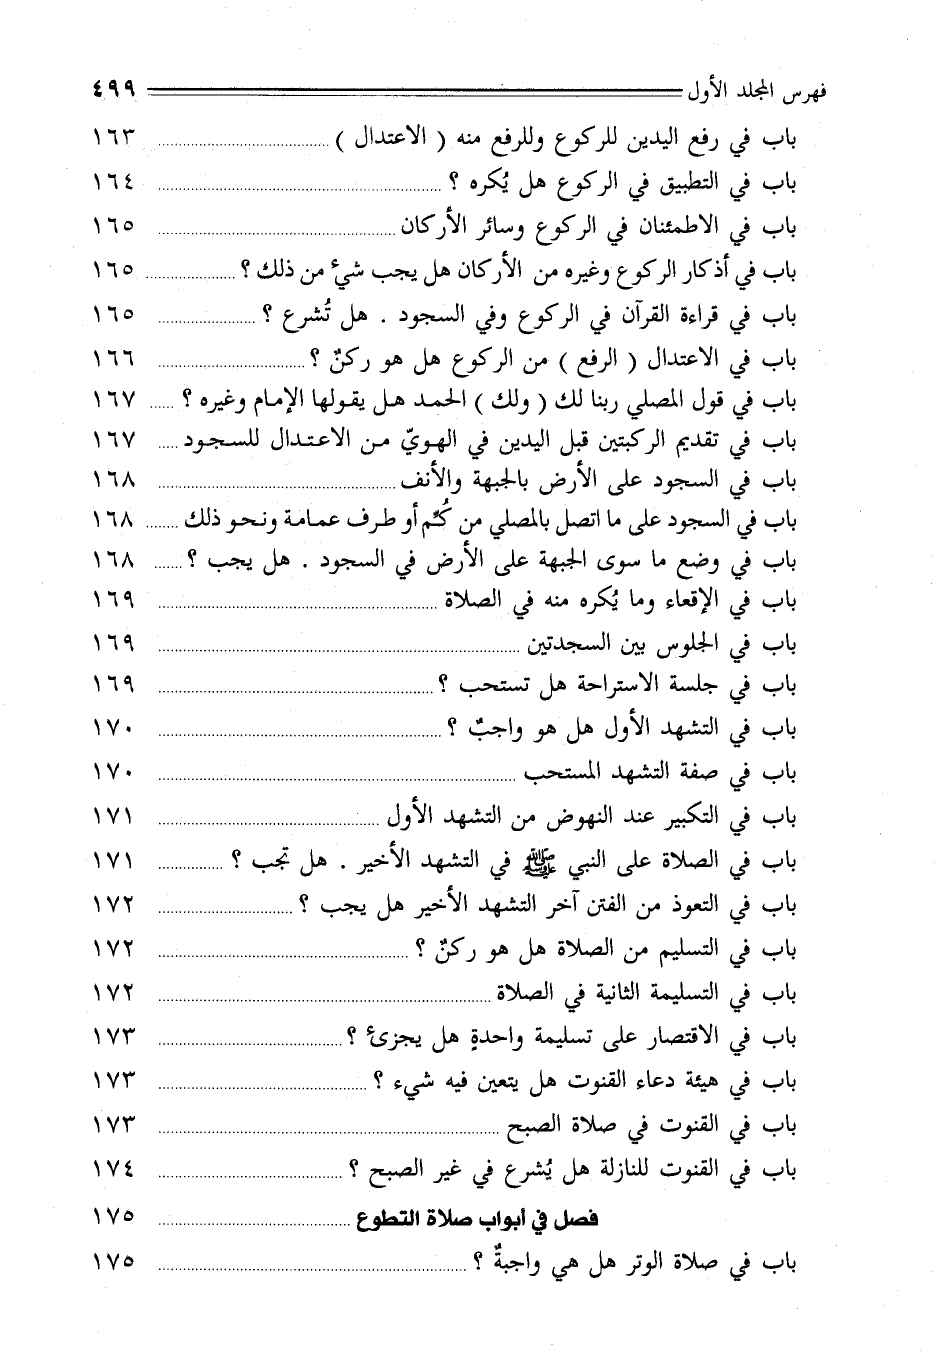 فهرس المجلد الأول ٤٩٩
باب في رفع اليدين للركوع وللرفع منه ( الاعتدال ) ١٦٣
باب في التطبيق في الركوع هل يُكره ؟ ١٦٤
باب في الاطمئنان في الركوع وسائر الأركان ١٦٥
باب في أذكار الركوع وغيره من الأركان هل يجب شيء من ذلك ؟ ١٦٥
باب في قراءة القرآن في الركوع وفي السجود . هل تُشرع ؟ ١٦٥
باب في الاعتدال ( الرفع ) من الركوع هل هو ركنٌ ؟ ١٦٦
باب في قول المصلي ربنا لك ( ولك ) الحمد هل يقولها الإمام وغيره ؟ ١٦٧
باب في تقديم الركبتين قبل اليدين في الهويّ من الاعتدال للسجود ١٦٧
باب في السجود على الأرض بالجبهة والأنف ١٦٨
باب في السجود على ما اتصل بالمصلي من كُم أو طرف عمامة ونحو ذلك ١٦٨
باب في وضع ما سوى الجبهة على الأرض في السجود . هل يجب ؟ ١٦٨
باب في الإقعاء وما يُكره منه في الصلاة ١٦٩
باب في الجلوس بين السجدتين ١٦٩
باب في جلسة الاستراحة هل تستحب ؟ ١٦٩
باب في التشهد الأول هل هو واجبٌ ؟ ١٧٠
باب في صفة التشهد المستحب ١٧٠
باب في التكبير عند النهوض من التشهد الأول ١٧١
باب في الصلاة على النبي ﷺ في التشهد الأخير . هل تجب ؟ ١٧١
باب في التعوذ من الفتن آخر التشهد الأخير هل يجب ؟ ١٧٢
باب في التسليم من الصلاة هل هو ركنٌ ؟ ١٧٢
باب في التسليمة الثانية في الصلاة ١٧٢
باب في الاقتصار على تسليمة واحدةٍ هل يجزئ ؟ ١٧٣
باب في هيئة دعاء القنوت هل يتعين فيه شيء ؟ ١٧٣
باب في القنوت في صلاة الصبح ١٧٣
باب في القنوت للنازلة هل يُشرع في غير الصبح ؟ ١٧٤
فصل في أبواب صلاة التطوع ١٧٥
باب في صلاة الوتر هل هي واجبةٌ ؟ ١٧٥